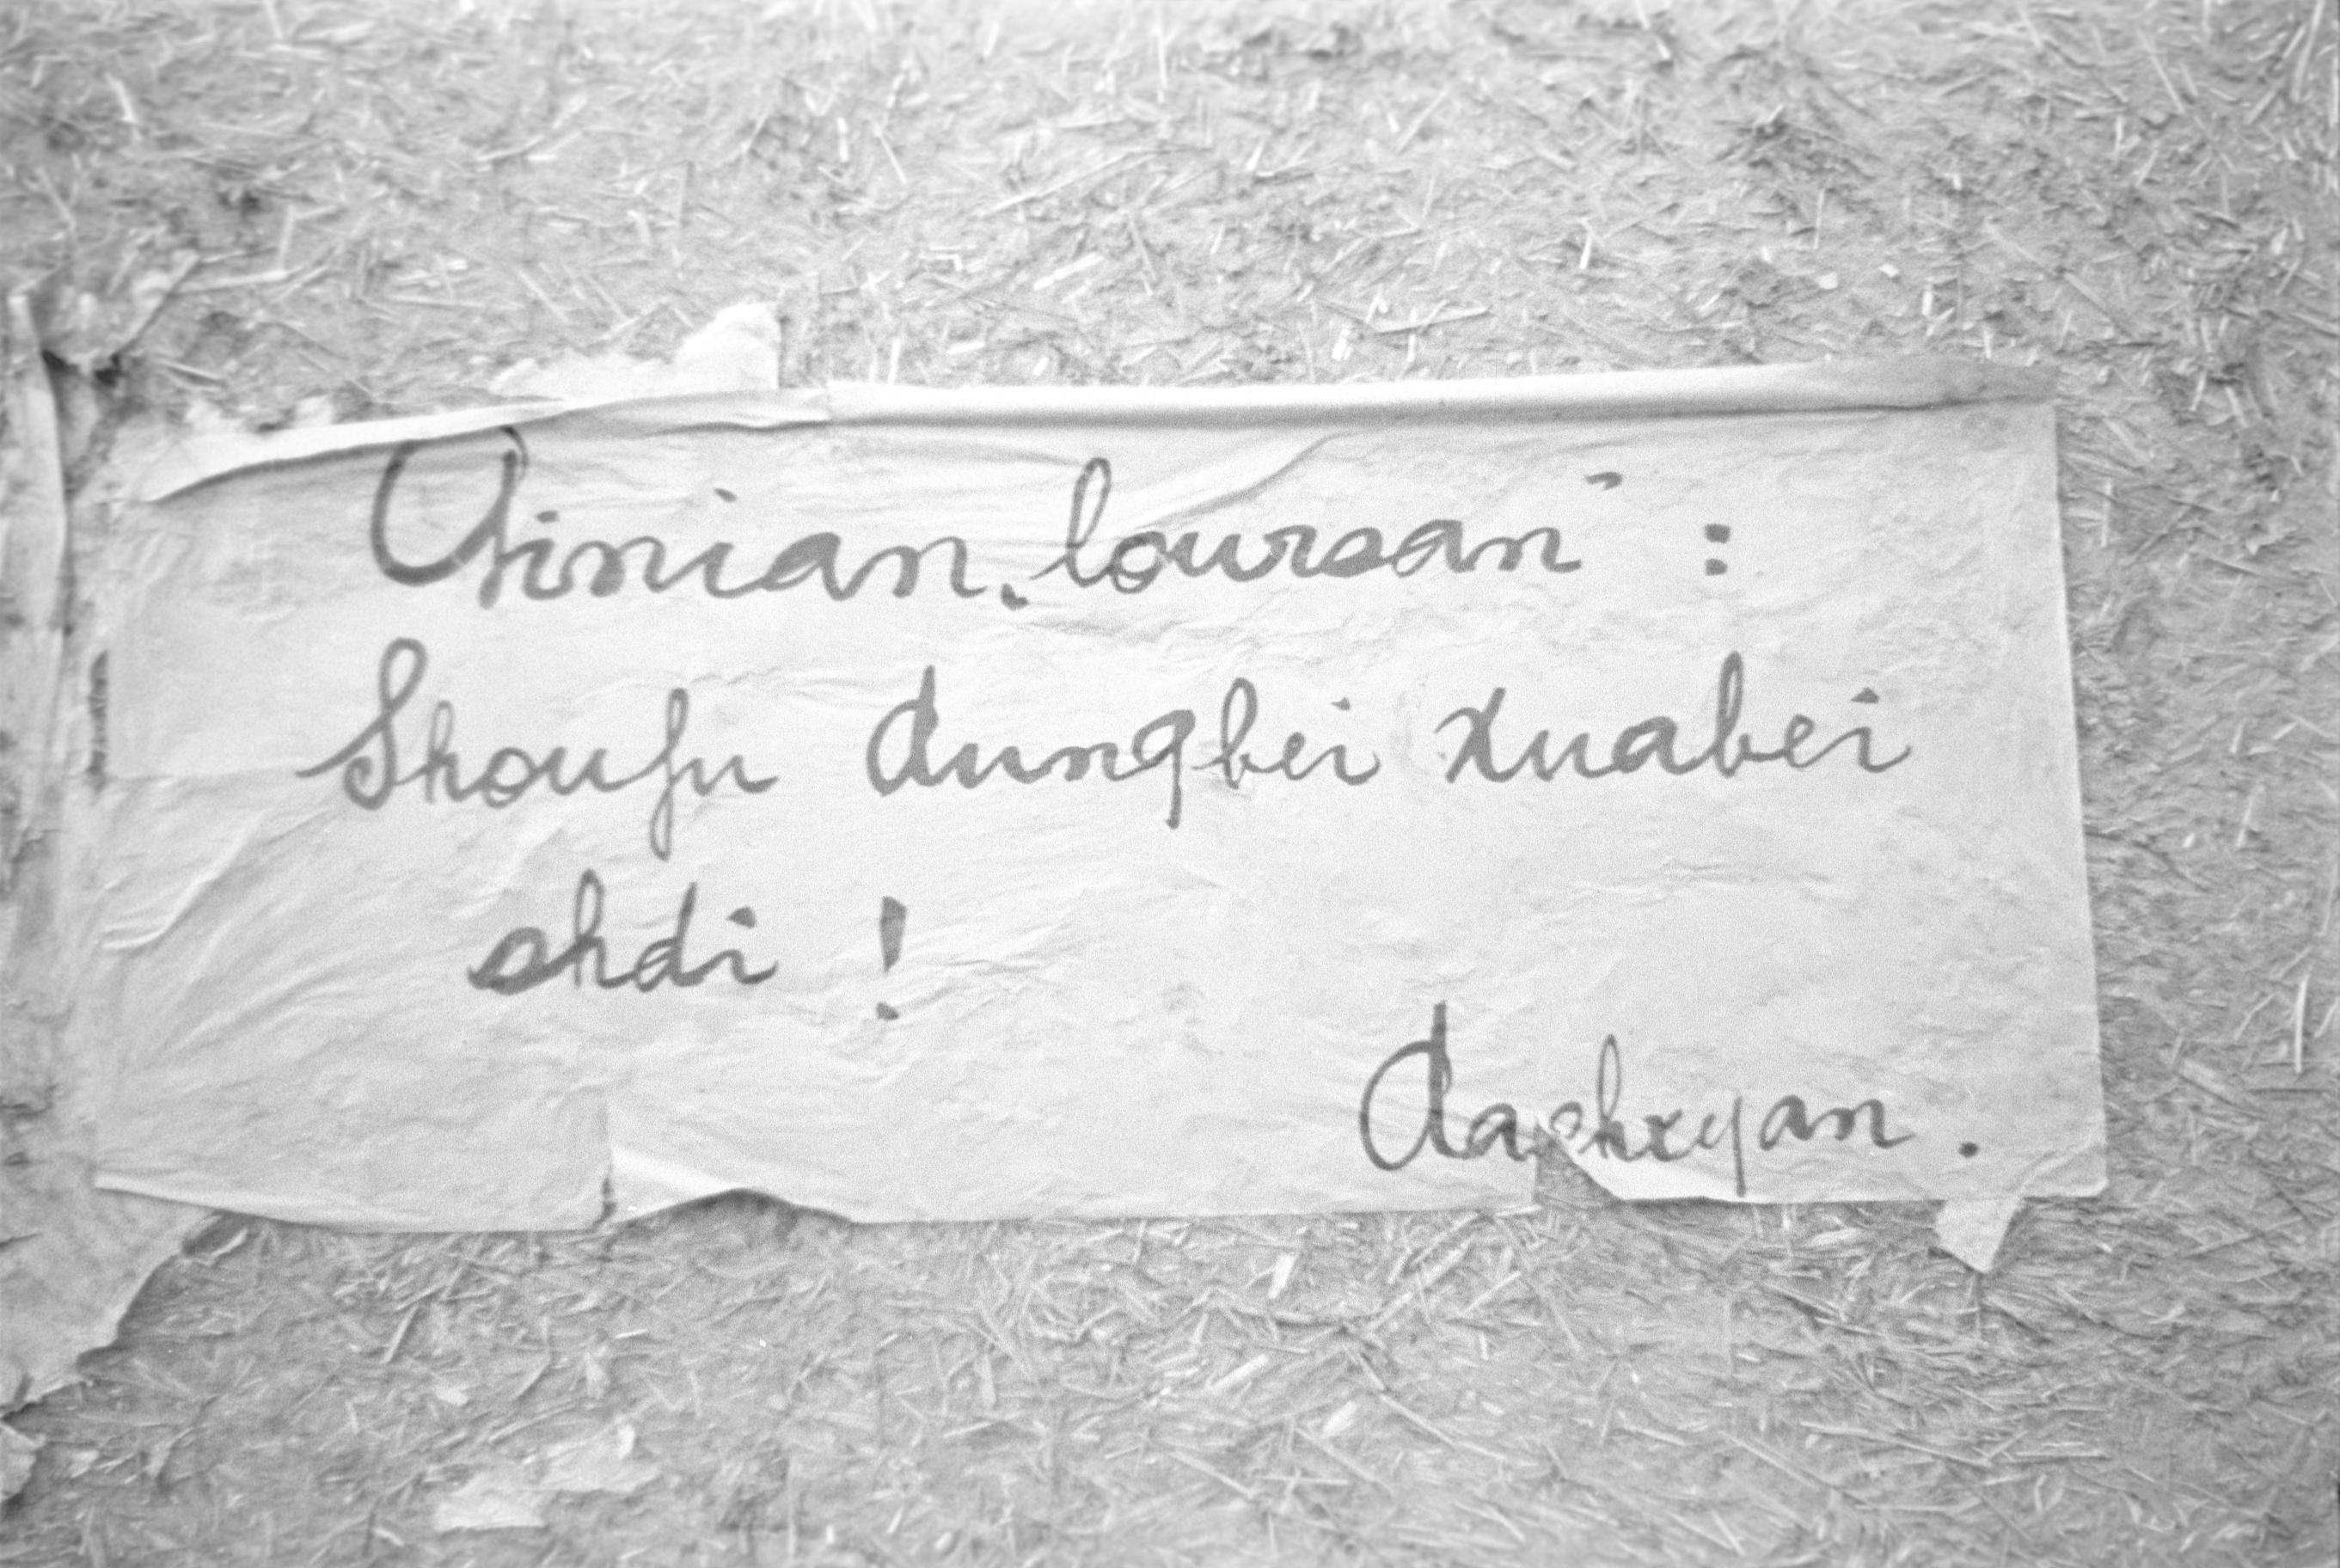 Ginian „loursan“ :
Shoufu dungbei xuabei
shdi !
dashxyan .